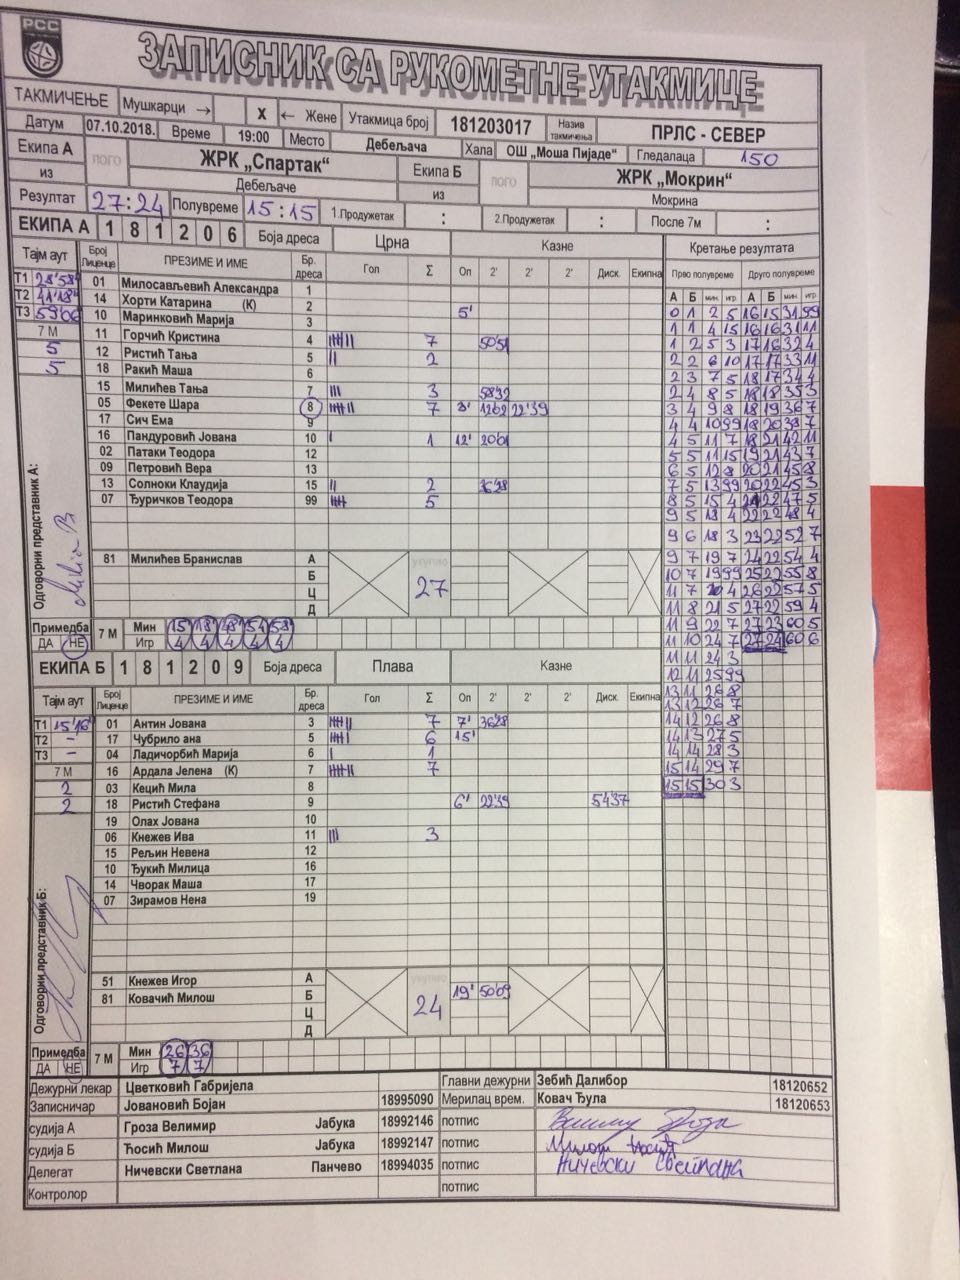 РСС
ЗАПИСНИК СА РУКОМЕТНЕ УТАКМИЦЕ
ТАКМИЧЕЊЕ Мушкарци → X ← Жене Утакмица број 181203017 Назив такмичења ПРЛС - СЕВЕР
Датум 07.10.2018. Време 19:00 Место Дебељача Хала ОШ „Моша Пијаде“ Гледалаца 150
Екипа А лого ЖРК „Спартак“ Екипа Б лого ЖРК „Мокрин“
из Дебељаче из Мокрина
Резултат 27:24 Полувреме 15:15 1.Продужетак : 2.Продужетак : После 7м :
ЕКИПА А 1 8 1 2 0 6 Боја дреса Црна Казне Кретање резултата
Тајм аут Број Лиценце ПРЕЗИМЕ И ИМЕ Бр. дреса Гол Σ Оп 2' 2' 2' Диск. Екипна Прво полувреме Друго полувреме
А Б мин. игр А Б мин. игр
Т1 28'58"
Т2 41'18"
Т3 59'06
7 М
5
5
01 Милосављевић Александра 1
14 Хорти Катарина (К) 2 5'
10 Маринковић Марија 3
11 Горчић Кристина 4 7 5051
12 Ристић Тања 5 2
18 Ракић Маша 6
15 Милићев Тања 7 3 5832
05 Фекете Шара 8 7 22'39
17 Сич Ема 9
16 Пандуровић Јована 10 1 12'
02 Патаки Теодора 12
09 Петровић Вера 13
13 Солноки Клаудија 15 2
07 Ђуричков Теодора 99 5
81 Милићев Бранислав А укупно 27
Б
Ц
Д
Одговорни представник А:
Примедба 7 М Мин 15' 18' 48' 54' 58'
ДА НЕ Игр 4 4 4 4 4
ЕКИПА Б 1 8 1 2 0 9 Боја дреса Плава Казне
Тајм аут Број Лиценце ПРЕЗИМЕ И ИМЕ Бр. дреса Гол Σ Оп 2' 2' 2' Диск. Екипна
Т1 15'16"
Т2 -
Т3 -
7 М
2
2
01 Антин Јована 3 7 7' 3628
17 Чубрило ана 5 6 15'
04 Ладичорбић Марија 6 1
16 Ардала Јелена (К) 7 7
03 Кецић Мила 8
18 Ристић Стефана 9 6' 2239 5437
19 Олах Јована 10
06 Кнежев Ива 11 3
15 Рељин Невена 12
10 Ђукић Милица 16
14 Чворак Маша 17
07 Зирамов Нена 19
51 Кнежев Игор А укупно 24
81 Ковачић Милош Б 19' 5009
Ц
Д
Одговорни представник Б:
Примедба 7 М Мин 26 36
ДА НЕ Игр 7 7
0 1 2 5 16 15 31 99
1 1 4 15 16 16 31 11
1 2 5 3 17 16 32 4
2 2 6 10 17 17 33 11
2 3 7 5 18 17 34 4
2 4 8 5 18 18 35 3
3 4 9 8 18 19 36 7
4 4 10 99 18 20 38 7
4 5 11 7 18 21 42 11
5 5 11 15 19 21 43 7
6 5 12 8 20 21 45 8
7 5 13 99 20 22 45 3
8 5 15 4 21 22 47 5
9 5 18 4 22 22 48 4
9 6 18 3 23 22 52 7
9 7 19 7 24 22 54 4
10 7 19 99 25 22 55 8
11 7 20 4 26 22 57 5
11 8 21 5 27 22 59 4
11 9 22 7 27 23 60 5
11 10 24 7 27 24 60 6
11 11 24 3
12 11 25 99
13 11 26 8
13 12 26 7
14 12 26 8
14 13 27 5
14 14 28 3
15 14 29 7
15 15 30 3
Дежурни лекар Цветковић Габријела Главни дежурни Зебић Далибор 18120652
Записничар Јовановић Бојан 18995090 Мерилац врем. Ковач Ђула 18120653
судија А Гроза Велимир Јабука 18992146 потпис
судија Б Ћосић Милош Јабука 18992147 потпис Милош Ћосић
Делегат Ничевски Светлана Панчево 18994035 потпис Ничевски Светлана
Контролор потпис